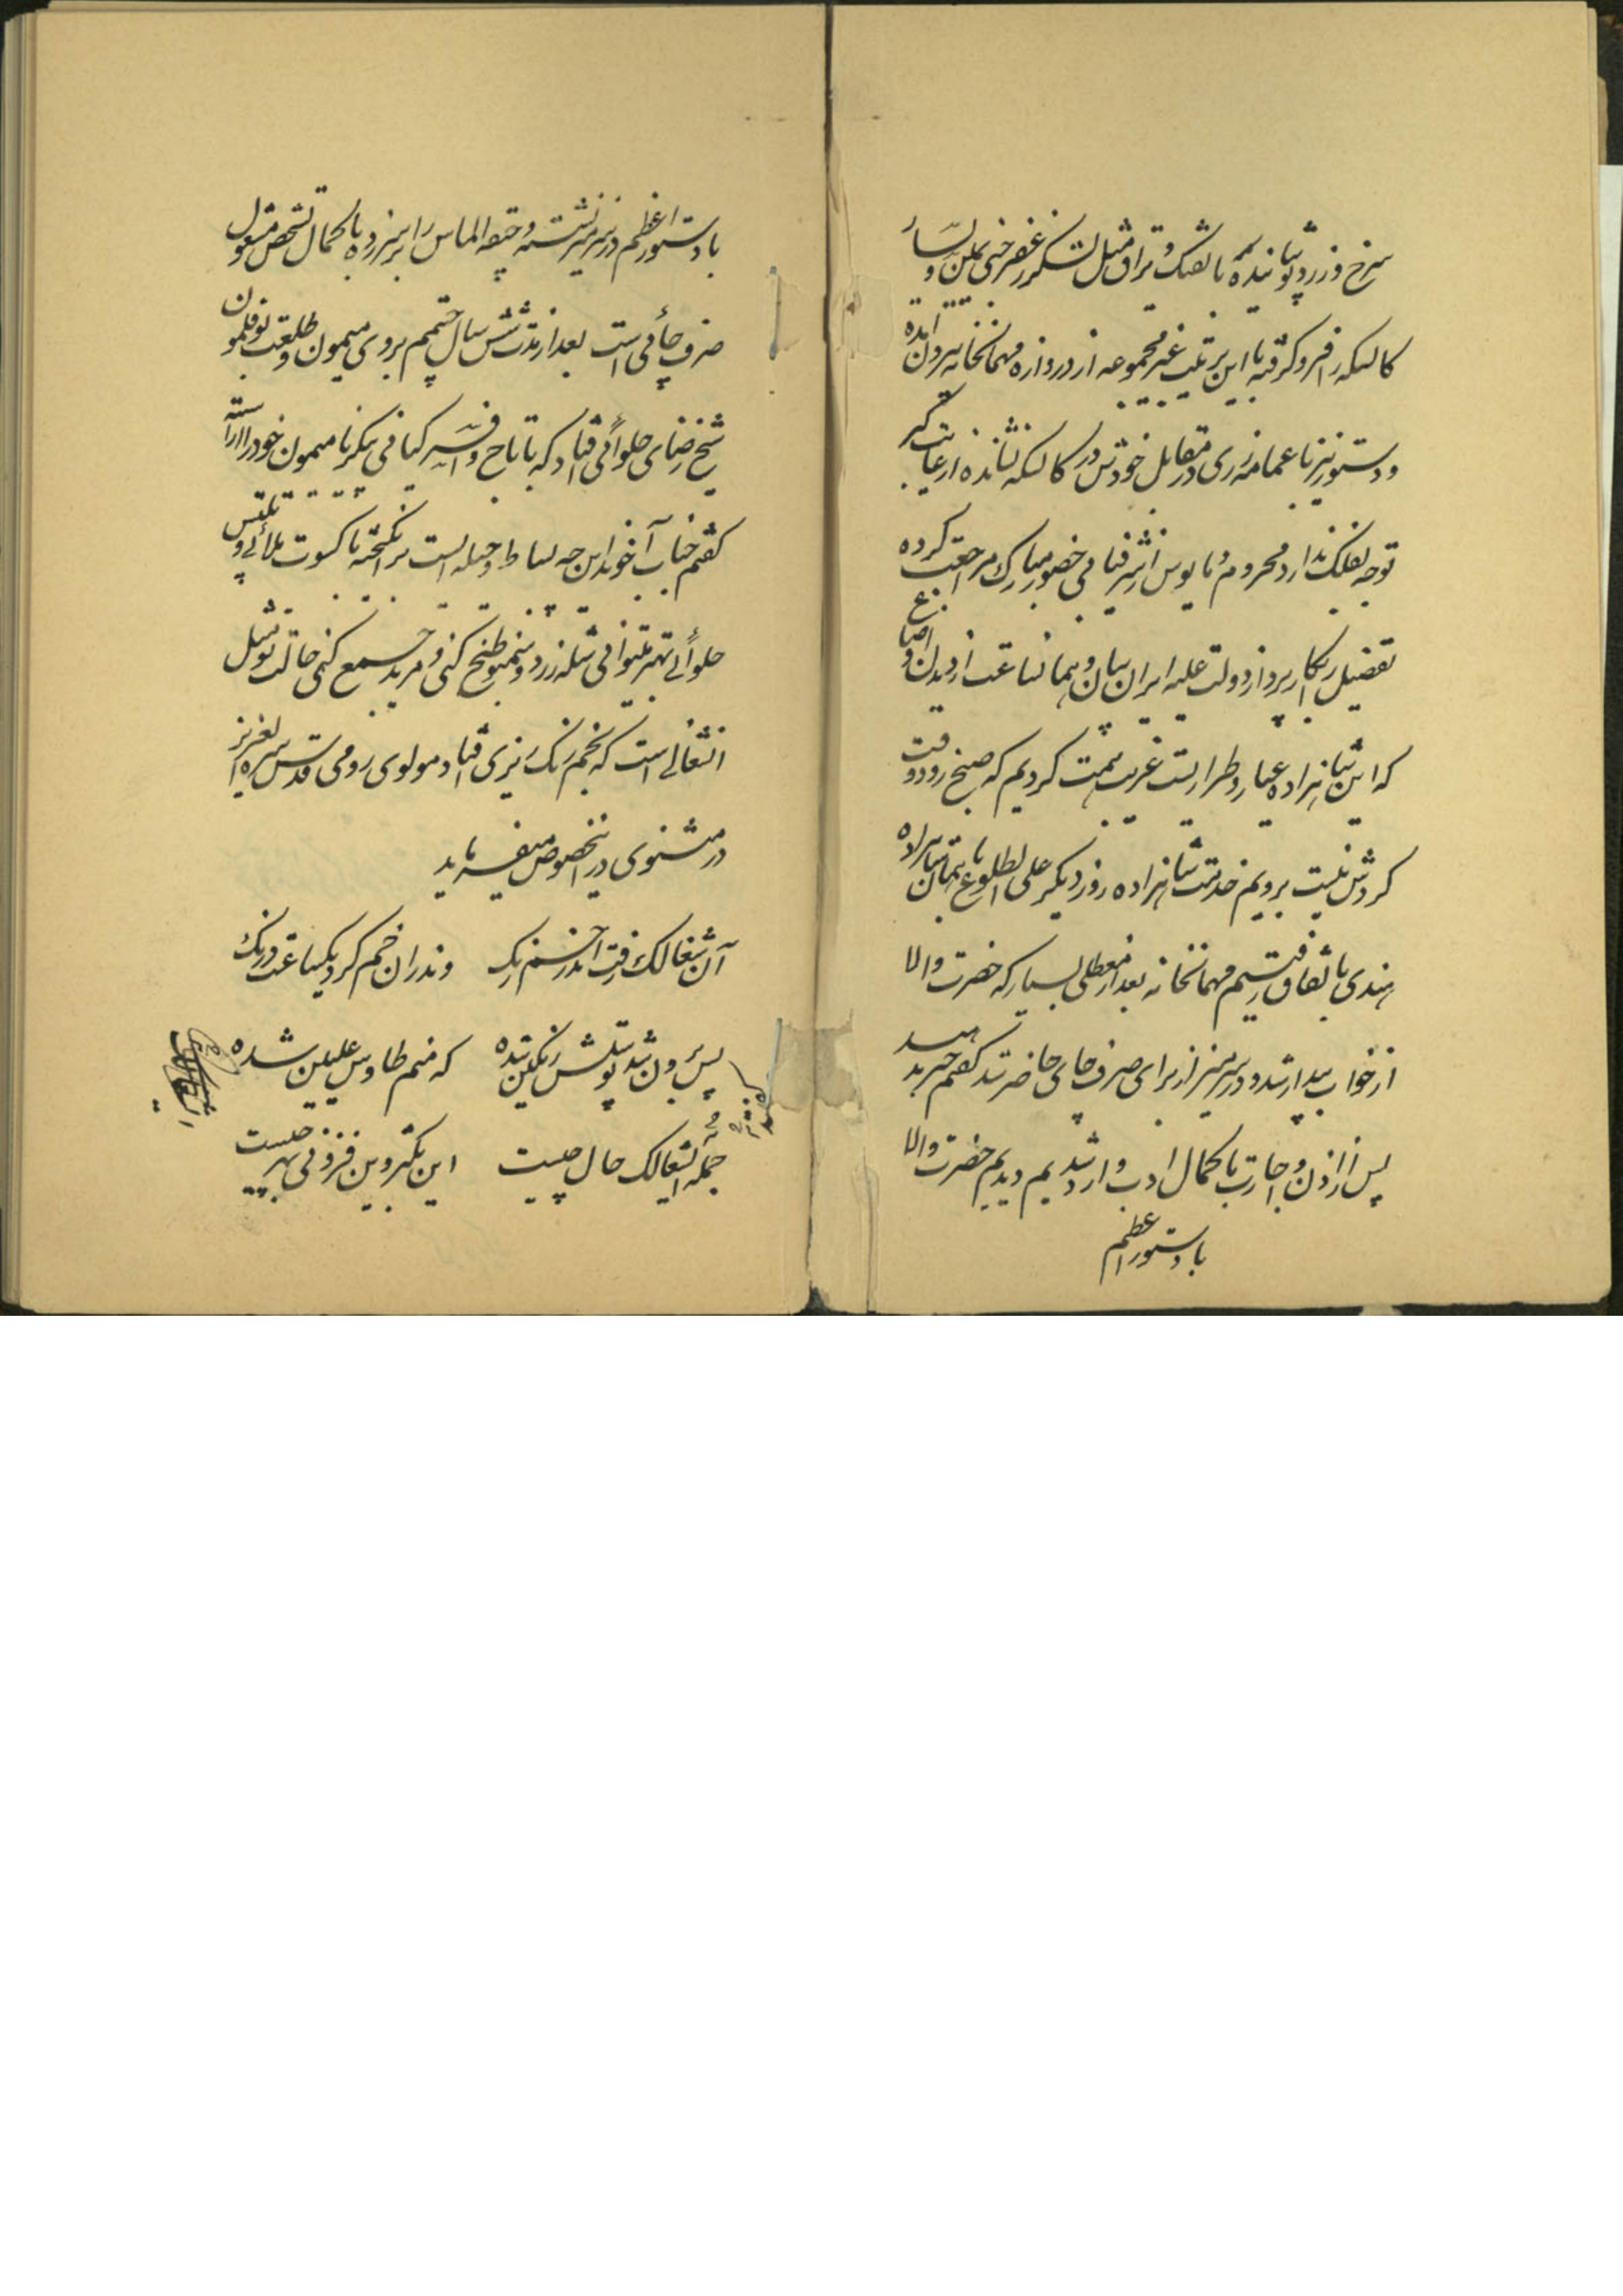 سرخ و زرد پوشانیده با تفنک و یراق مثل لشکر غضر خنی یمین و یسار
کالسکه را فرو کرفته با این ترتیب غیر مجموعه از دروازه مهمانخانه بیرون آمده
و دستور نیز با عمامه زری در مقابل خودش در کالسکه نشانده از غایت کبر
توجه بفلک ندارد محروم و مایوس از شرفیابی حضور مبارک مراجعت کرده
تفصیل را بکارپرداز دولت علیه ایران بیان و همانساعت از دیدن اوضاع
که این شاهزاده عیار و طرار است عزیمت کردیم که صبح زود وقت
کردش نیست برویم خدمت شاهزاده روز دیکر علی الطلوع با همان شاهزاده
هندی باتفاق رفتیم مهمانخانه بعد از معطلی بسیار که حضرت والا
از خواب بیدار شد و در سر میز از برای صرف چای حاضر شد کفتم خبر بدهید
پس از اذن و اجازت با کمال ادب وارد شدیم دیدیم حضرت والا
با دستور اعظم
با دستور اعظم در سر میز نشسته و جقه الماس را بر سر زده با کمال تشخص مشغول
صرف چائی است بعد از مدت شش سال چشمم بروی میمون و طلعت بوقلمون
شیخ رضای حلوائی افتاد که با تاج و افسر کیانی پیکر نامیمون خود را آراسته
کفتم جناب آخوند این چه بساط و حیله است برانکیخته با کسوت ملائی و تلبیس
حلوائی بهتر میتوانی شله زرد و سمنو طبخ کنی و مرید جمع کنی حالت تو مثل
انشغالی است که بخم رنک رزی افتاد مولوی رومی قدس سره العزیز
در مثنوی در اینخصوص میفرماید
آن شغالک رفت اندر خم رنک وندران خم کرد یکساعت درنک
پس برون شد پوستش رنکین شده که منم طاوس علیین شده
جمله کفتند ای شغالک حال چیست این تکبر وین فزونی بهر چیست